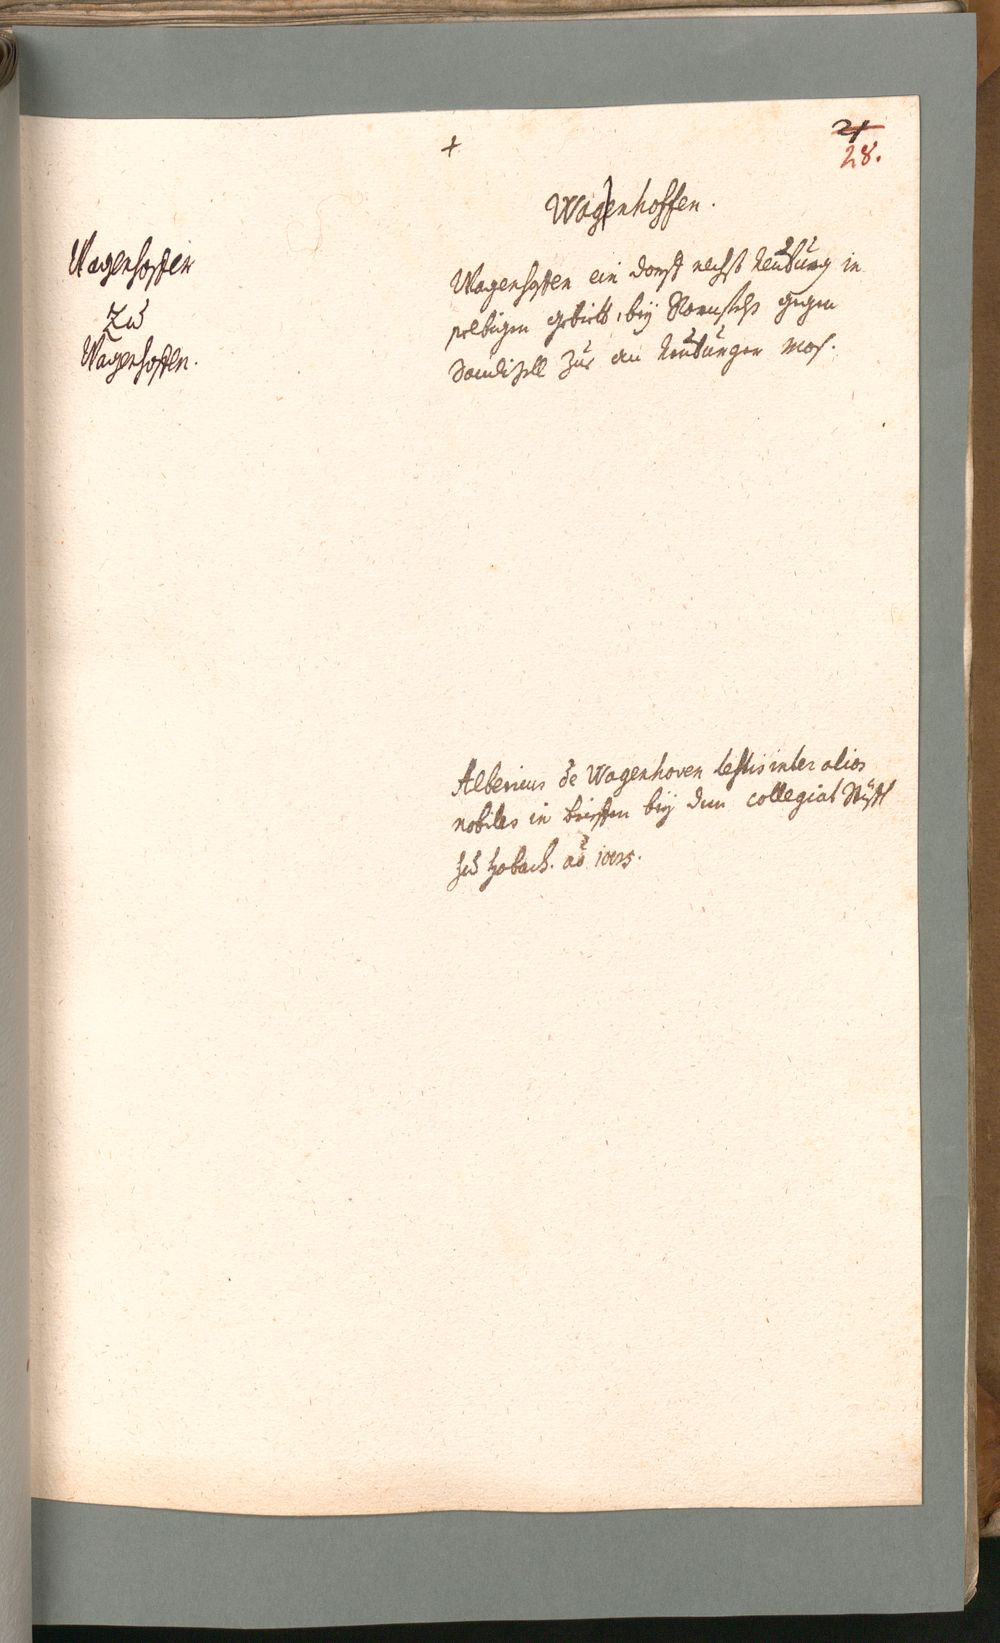 +
21
28.
Wagenhoffen.
Wagenhoffer
Zu
Wagenhoffen.
Wagenhoffen ein dorff nechst Neuburg in
selbigen gebiett, bey gegen
Sandizell zue am Neuburger Mos.
Albericus de Wagenhoven testis inter alios
nobiles in brieffen bey dem collegiat Stüfft
zu